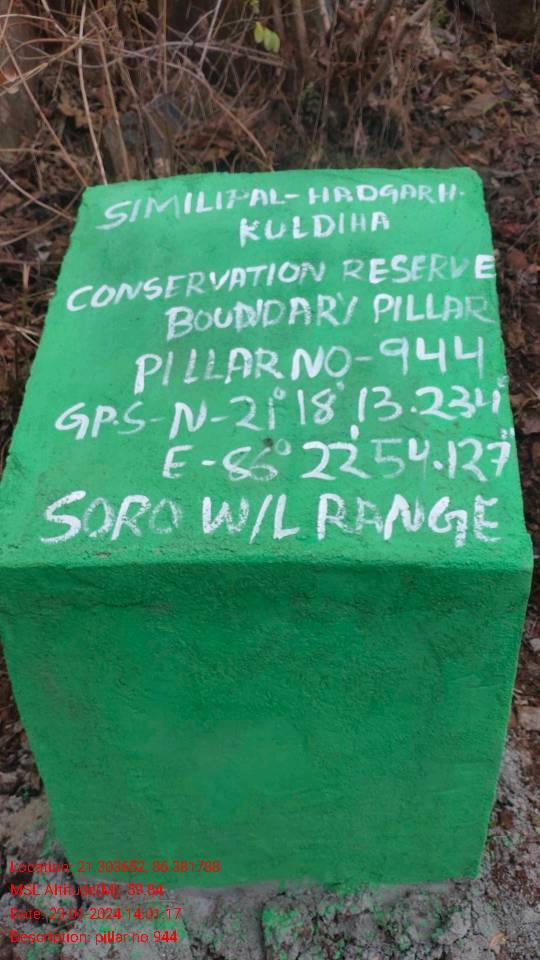 SIMILIPAL-HADGARH.
KULDIHA
CONSERVATION RESERVE
BOUNDARY PILLAR
PILLAR NO-944
GPS-N-21° 18' 13.234"
E-86° 22' 54.127"
SORO W/L RANGE
Location: 21.303652, 86.381788
MSL Altitude(M): 89.84
Date: 23-01-2024 14:01:17
Description: pillar no 944